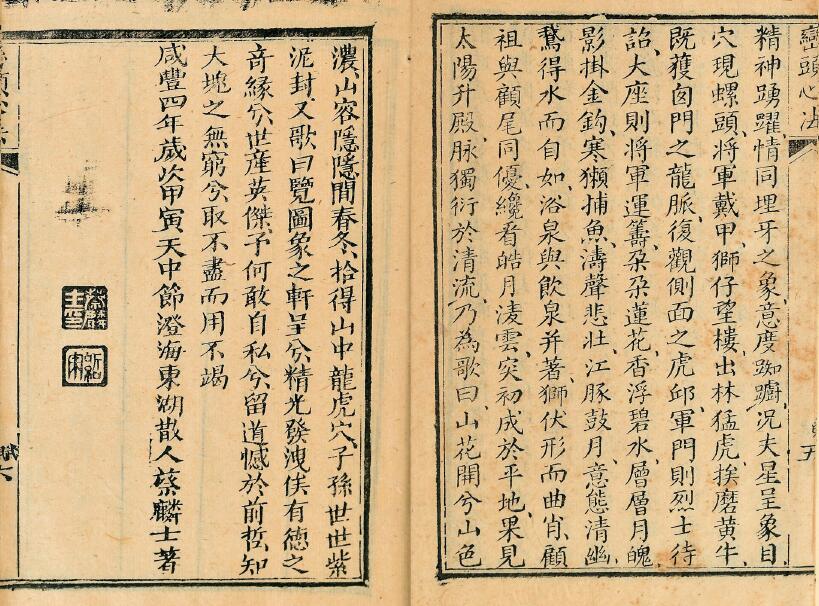 巒頭心法
精神踴躍情同埋牙之象意度踟躕況夫星呈象目
穴現螺頭將軍戴甲獅仔望樓出林猛虎挨磨黃牛
既獲囪門之龍脈復觀側面之虎邱軍門則烈士待
詔大座則將軍運籌朶朶蓮花香浮碧水層層月魄
影掛金鈎寒獺捕魚濤聲悲壯江豚鼓月意態清幽
鵞得水而自如浴泉與飲泉并著獅伏形而曲肖顧
祖與顧尾同優纔看皓月淩雲突初成於平地果見
太陽升殿脉獨衍於清流乃為歌曰山花開兮山色
五
濃山容隱隱間春冬拾得山中龍虎穴子孫世世紫
泥封又歌曰覽圖象之軒呈兮精光發洩俟有德之
奇緣兮世産英傑予何敢自私兮留道憾於前哲知
大塊之無窮兮取不盡而用不竭
咸豐四年歲次甲寅天中節澄海東湖散人蔡麟士著
賦六